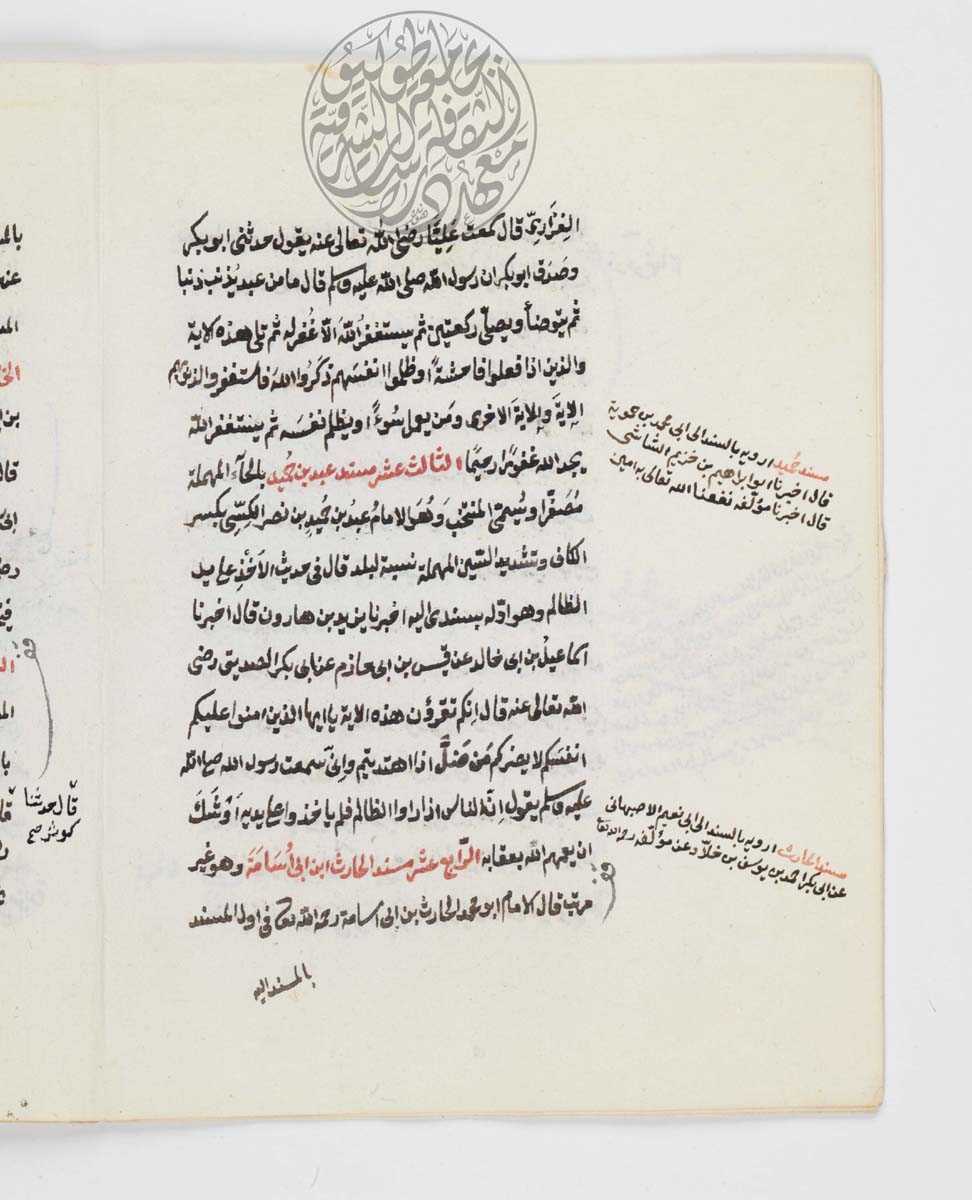 الفزاريّ قال سمعت عليًّا رضى الله تعالى عنه يقول حدثنى ابو بكر
وصدق ابو بكر ان رسول الله صلى الله عليه وسلم قال ما من عبد يذنب ذنبا
ثم يتوضأ ويصلّى ركعتين ثم يستغفر اللّه الّا غُفر له ثم تلى هذه الاية
والذين اذا فعلوا فاحشةً او ظلموا انفسهم ذكروا الله فاستغفروا لذنوبهم
الاية والاية الاخرى ومن يعمل سُوءًا او يظلم نفسه ثم يستغفر اللّه
يجد الله غفورًا رحيمًا الثالث عشر مسند عبد بن حُميد بالحآء المهملة
مُصَغّرًا ويُسمّى المنتخب وهو الامامُ عبدُ بن حُميدِ بن نصر الكِسّىّ بكسر
الكاف وتشديد السّين المهملة نسبة لبلد قال فى حديث الاَخْذِ على يد
الظالم وهو اوّله بسندى اليه اخبرنا يزيد بن هارون قال اخبرنا
اسماعيلُ بن ابى خالد عن قيس بن ابى حازم عن ابى بكر الصديق رضى
اللّه تعالى عنه قال انكم تقرؤن هذه الاية يا ايها الذين امنوا عليكم
انفسكم لا يضركم من ضلّ اذا اهتديتم وانّى سمعت رسول الله صلى الله
عليه وسلم يقول انّ الناس اذا راوا الظالم فلم ياخذوا على يديه اَوْشَكَ
ان يعمهم اللّه بعقابه الرّابع عشر مسند الحارث ابن ابى اُسامة وهو غير
مرتب قال الامام ابو محمد الحارث بن ابى اسامة رحمه اللّه تعالى فى اول المسند
بالمسند اليه
مسند حُميد ارويه بالسند الى ابى محمد بن حموية
قال اخبرنا ابو ابراهيم بن خزيم الشاشى
قال اخبرنا مؤلّفه نفعنا الله تعالى به امين
مسند الحارث ارويه بالسند الى ابى نعيم الاصبهانى
عن ابى بكر احمد بن يوسف بن خلّاد عن مؤلّفه رحمه الله تعالى
قال حدثنا